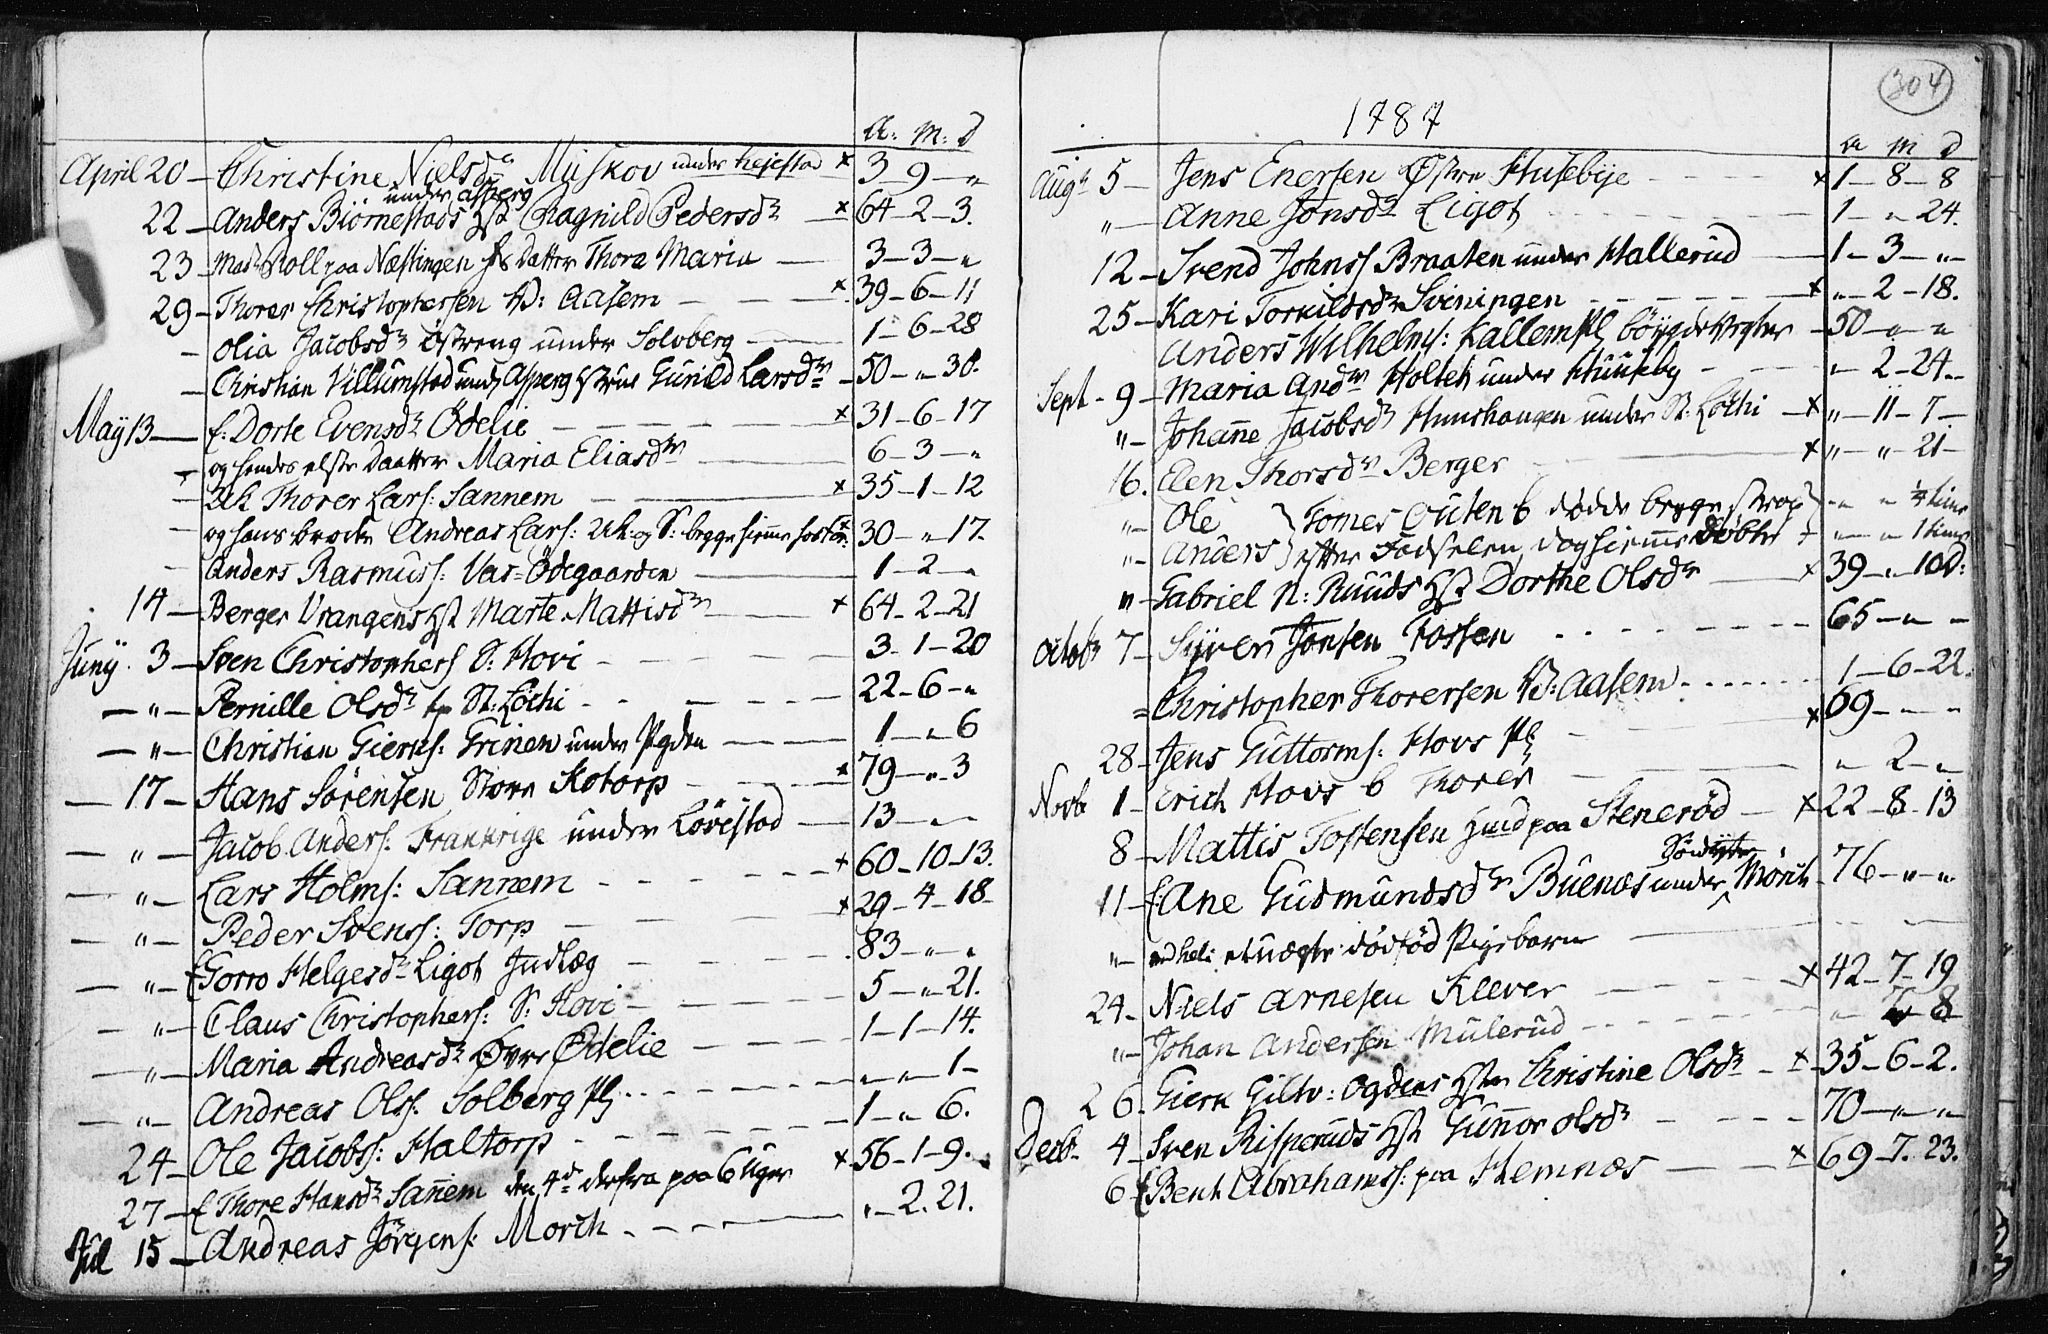 a: m: d
April 20 — Christine Nielsdr Muskov under Hejestad x 3 — 9 — "
under Asperg
22 — Anders Biörnestads Hst Ragnild Pedersdr — x 64 — 2 — 3.
23 — Madr Roll paa Næstingen Datter Thora Maria — 3 — 3 — "
29 — Thorer Christophersen Aasem — x 39 — 6 — 11
— Olia Jacobsdr Östreng under Solvberg — 1 — 6 — 28
— Christian Villumstad und Asperg Hstrue Gunild Larsdr — 50 — " 30.
May 13 — f: Dorte Evensdr Ödelie — x 31 — 6 — 17
og hendes elste Daatter Maria Eliasdr — 6 — 3 — "
— Uk Thorer Lars: Sannem — x 35 — 1 — 12
— og hans brode Andreas Lars: Uk og S: begge hiemme x 30 — " 17.
— Anders Rasmuss: Vas=Ödegaarden — 1 — 2 — "
14 — Berger Vrangens Hst Marte Mattisdr — x 64 — 2 — 21
Juny. 3 — Sven Christophers S: Hovi — 3 — 1 — 20
— " — Pernille Olsdr St: Löchi — 22 — 6 — "
— " — Christian Gierss: Grinen under Ogden — 1 — " 6
— 17 — Hans Sörensen Store Kotorp — x 79 — " 3
— " — Jacob Anders: Frankrige under Lövestad — 13 — " —
— " — Lars Holms: Sannem — x 60 — 10 — 13.
— " — Peder Svenss: Torp — x 29 — 4 — 18
— " — f Gorro Helgesdr Ligot Indlæg — 83 — " — "
— " — Claus Christophers: S: Hovi — 5 — " 21.
— " — Maria Andreasdr Övre Ödelie — 1 — 1 — 14.
— " — Andreas Ols: Solberg Pl — " — " — 1 —
24 — Ole Jacobs: Haltorp — 1 — " 6.
27 — f Thore Hansdr Sañem den 4de derfra paa 6 Uger x 56 — 1 — 9.
Jul 15 — Andreas Jörgens: Morch — " — 2. 21.
304
1787
a m d
Augs 5 — Jens Enersen Östre Husebye — x 1 — 8 — 8
" — Anne Jonsdr Ligot — 1 — " 24.
12 — Svend Johnss Braaten under Hallerud — 1 — 3 — "
25 — Kari Torkildsdr Sviningen — x " — 2 — 18.
Anders Wilhelms: Kallem Pl — 50 — " — "
Sept — 9 — Maria Andrs Holteh under Huuseby — " — 2 — 24.
" — Johañe Jacobsdr Hunshougen under St: Löchi — x " — 11 — 7 —
16. Elen Thorsdr Berger — x " — " 21 —
" — Ole } Tomes Outen b dödde begge strax } — " — " 1/4 time
" — Anders } efter Fødselen, dog hiemme Döbte + " — " 1 time
" — Gabriel N: Ruuds Hst Dorthe Olsdr — x 39 — " 10 D:
Octobr 7 — Syver Jonsen Fossen — 65 — " —
= Christopher Thorersen Aasem — 1 — 6 — 22.
28 — Jens Guttorms: Hovs Pl — x 69 — " — "
Novbr 1 — Erich Hovs b Thorer — " 2 — "
8 — Mattis Tostensen Huusmand paa Stenerød — x 22 — 8 — 13
Söndre
11 — f: Ane Gudmundsdr Buenæs under Mörch — 76 — " — "
" — uægte dödfød Pigebarn —
24 — Niels Arnesen Klever — x 42 — 7 — 19
" — Johan Andersen Mulerud — " 8
26. Gierk Giltv: Ogdens Hstr Christine Olsdr — x 35 — 6 — 2.
Decbr 4 — Sven Risperuds Hst Guñor Olsdr — 70 — " — "
6 f Bent Abrahamss: paa Hemnæs — x 69 — 7. 23.